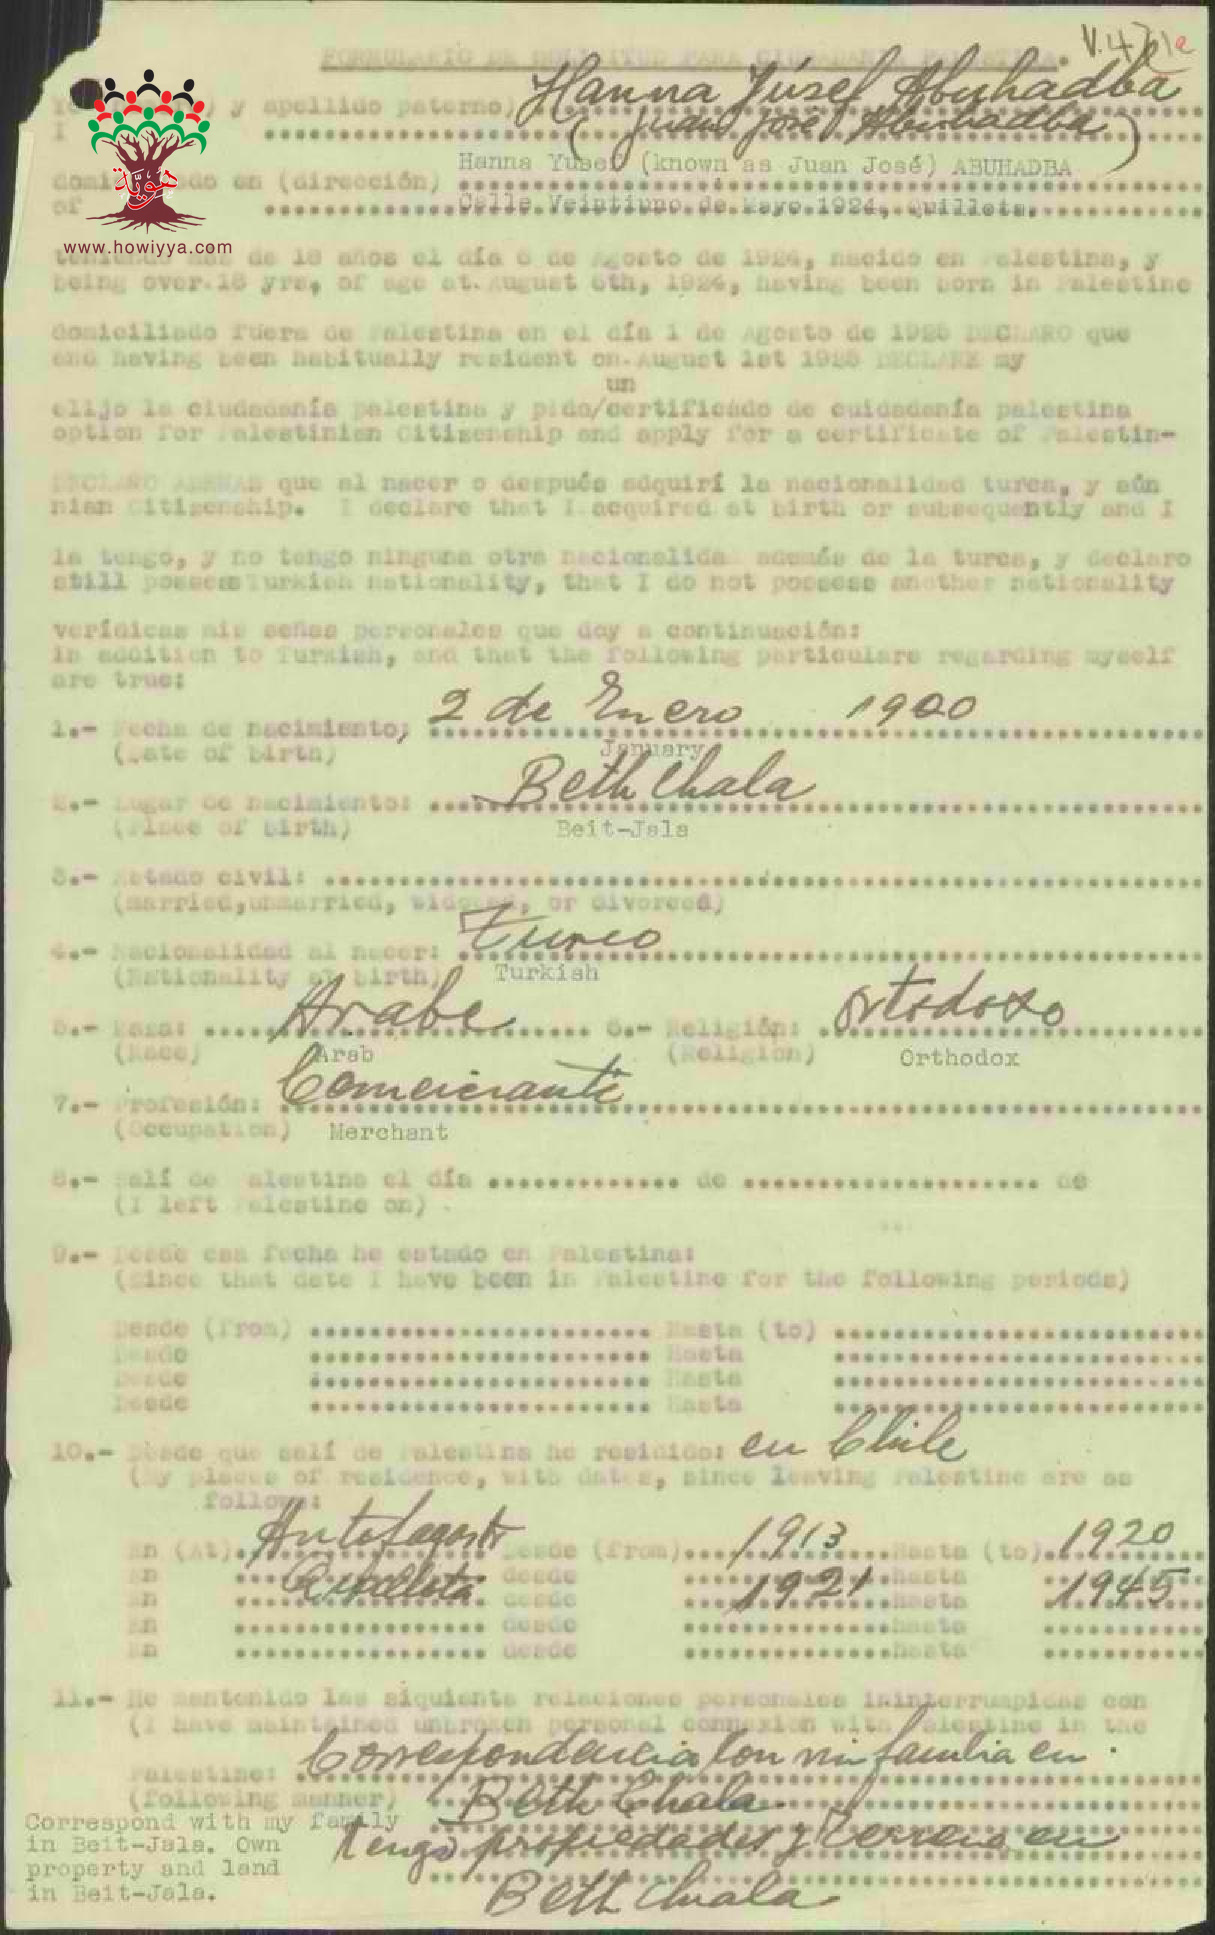 V.471a
FORMULARIO DE SOLICITUD PARA CIUDADANIA PALESTINA.
Yo y apellido paterno) Hanna Júsef Abuhadba
I (Juan José Abuhadba)
Hanna Yusef (known as Juan José) ABUHADBA
domiciliado en (dirección)
of Calle Veintiuno de Mayo 1924, Quillota.
هوية
www.howiyya.com
teniendo más de 18 años el día 6 de Agosto de 1924, nacido en Palestina, y
being over 18 yrs, of age at August 6th, 1924, having been born in Palestine
domiciliado fuera de Palestina en el día 1 de Agosto de 1925 DECLARO que
and having been habitually resident on August 1st 1925 DECLARE my
un
elijo la ciudadanía palestina y pido/certificado de cuidadanía palestina
option for Palestinian Citizenship and apply for a certificate of Palestin-
DECLARO ADEMAS que al nacer o después adquirí la nacionalidad turca, y aún
nian Citizenship. I declare that I acquired at birth or subsequently and I
la tengo, y no tengo ninguna otra nacionalidad además de la turca, y declaro
still possess Turkish nationality, that I do not possess another nationality
verídicas mis señas personales que doy a continuación:
in addition to Turkish, and that the following particulars regarding myself
are true:
1.- Fecha de nacimiento; 2 de Enero 1900
(Date of birth) January
2.- Lugar de nacimiento: Beth Chala
(Place of birth) Beit-Jala
3.- Estado civil:
(married,unmarried, widowed, or divorced)
4.- Nacionalidad al nacer: Turco
(Nationality at birth) Turkish
5.- Raza: Arabe 6.- Religión: ortodoxo
(Race) Arab (Religion) Orthodox
7.- Profesión: Comerciante
(Occupation) Merchant
8.- Salí de Palestina el día de de
(I left Palestine on)
9.- Desde esa fecha he estado en Palestina:
(Since that date I have been in Palestine for the following periods)
Desde (from) Hasta (to)
Desde Hasta
Desde Hasta
Desde Hasta
10.- Desde que salí de Palestina he residido: en Chile
(My places of residence, with dates, since leaving Palestine are as
follows:
En (At) Antofagasta Desde (from) 1913 Hasta (to) 1920
En desde hasta
En Quillota desde 1921 hasta 1945
En desde hasta
En desde hasta
11.- He mantenido las siquiente relaciones personales ininterrumpidas con
(I have maintained unbroken personal connexion with Palestine in the
Palestine: Correspondencia con mi familia en
(following manner) Beth Chala
Correspond with my family
in Beit-Jala. Own
property and land
in Beit-Jala.
tengo propiedades y terreno en
Beth Chala